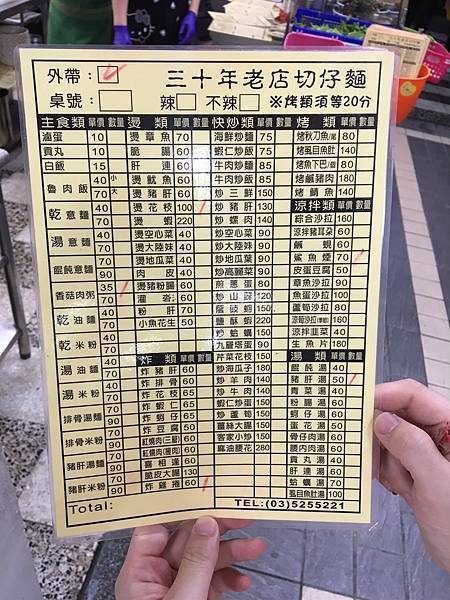 外帶：□ 三十年老店切仔麵
桌號：□ 辣□ 不辣□ ※烤類須等20分
主食類 單價 數量
滷蛋 10
貢丸 10
白飯 15
魯肉飯 40 小
70 大
乾意麵 40
70
湯意麵 40
70
餛飩意麵 60
90
香菇肉粥 35
70
乾油麵 40
70
乾米粉 40
70
湯油麵 40
70
湯米粉 40
70
排骨湯麵 70
90
排骨米粉 70
90
豬肝湯麵 70
90
豬肝米粉 70
90
Total:
燙類 單價 數量
燙章魚 70
脆腸 60
肝連 60
燙魷魚 60
燙豬肝 60
燙花枝 100
燙蝦 220
燙空心菜 40
燙大陸妹 40
燙地瓜菜 40
肉皮 40
燙豬粉腸 60
粉肝 60
小魚花生 50
炸類 單價 數量
炸豬肝 60
炸排骨 60
炸花枝 65
炸蝦仁 65
炸蚵仔 65
炸豆腐 50
紅燒肉(三層) 60
紅燒肉(瘦肉) 60
喜相逢 60
脆皮大腸 130
炸雞捲 60
快炒類 單價 數量
海鮮炒麵 75
蝦仁炒飯 75
牛肉炒麵 85
牛肉炒飯 85
炒三鮮 150
炒豬肝 130
炒螺肉 140
炒空心菜 90
炒大陸妹 90
炒地瓜葉 90
炒高麗菜 90
煎蔥蛋 80
炒山蘇 120
鹽酥蝦 220
炒蛤蠣 150
九層塔蛋 90
芹菜花枝 150
炒海瓜子 180
炒羊肉 140
炒牛肉 140
蝦仁炒蛋 140
炒蘆筍 140
薑絲大腸 150
客家小炒 150
麻油腰花 280
烤類 單價 數量
烤秋刀魚/尾 80
烤虱目魚肚 140
烤魚下巴/個 80
烤鹹豬肉 180
烤鯖魚 140
涼拌類 單價 數量
綜合沙拉 160
涼拌豬耳朵 60
鹹蜆 60
鯊魚煙 70
皮蛋豆腐 50
章魚沙拉 90
魚蛋沙拉 100
蘆筍沙拉 90
涼筍沙拉(季節) 160
涼拌韭菜 40
生魚片 180
湯類 單價 數量
餛飩湯 40
豬肝湯 50
青菜湯 40
粉腸湯 60
蚵仔湯 60
蛋花湯 50
骨仔肉湯 60
腰內肉湯 60
貢丸湯 40
肝連湯 60
蛤蠣湯 70
虱目魚肚湯 100
TEL:(03)5255221